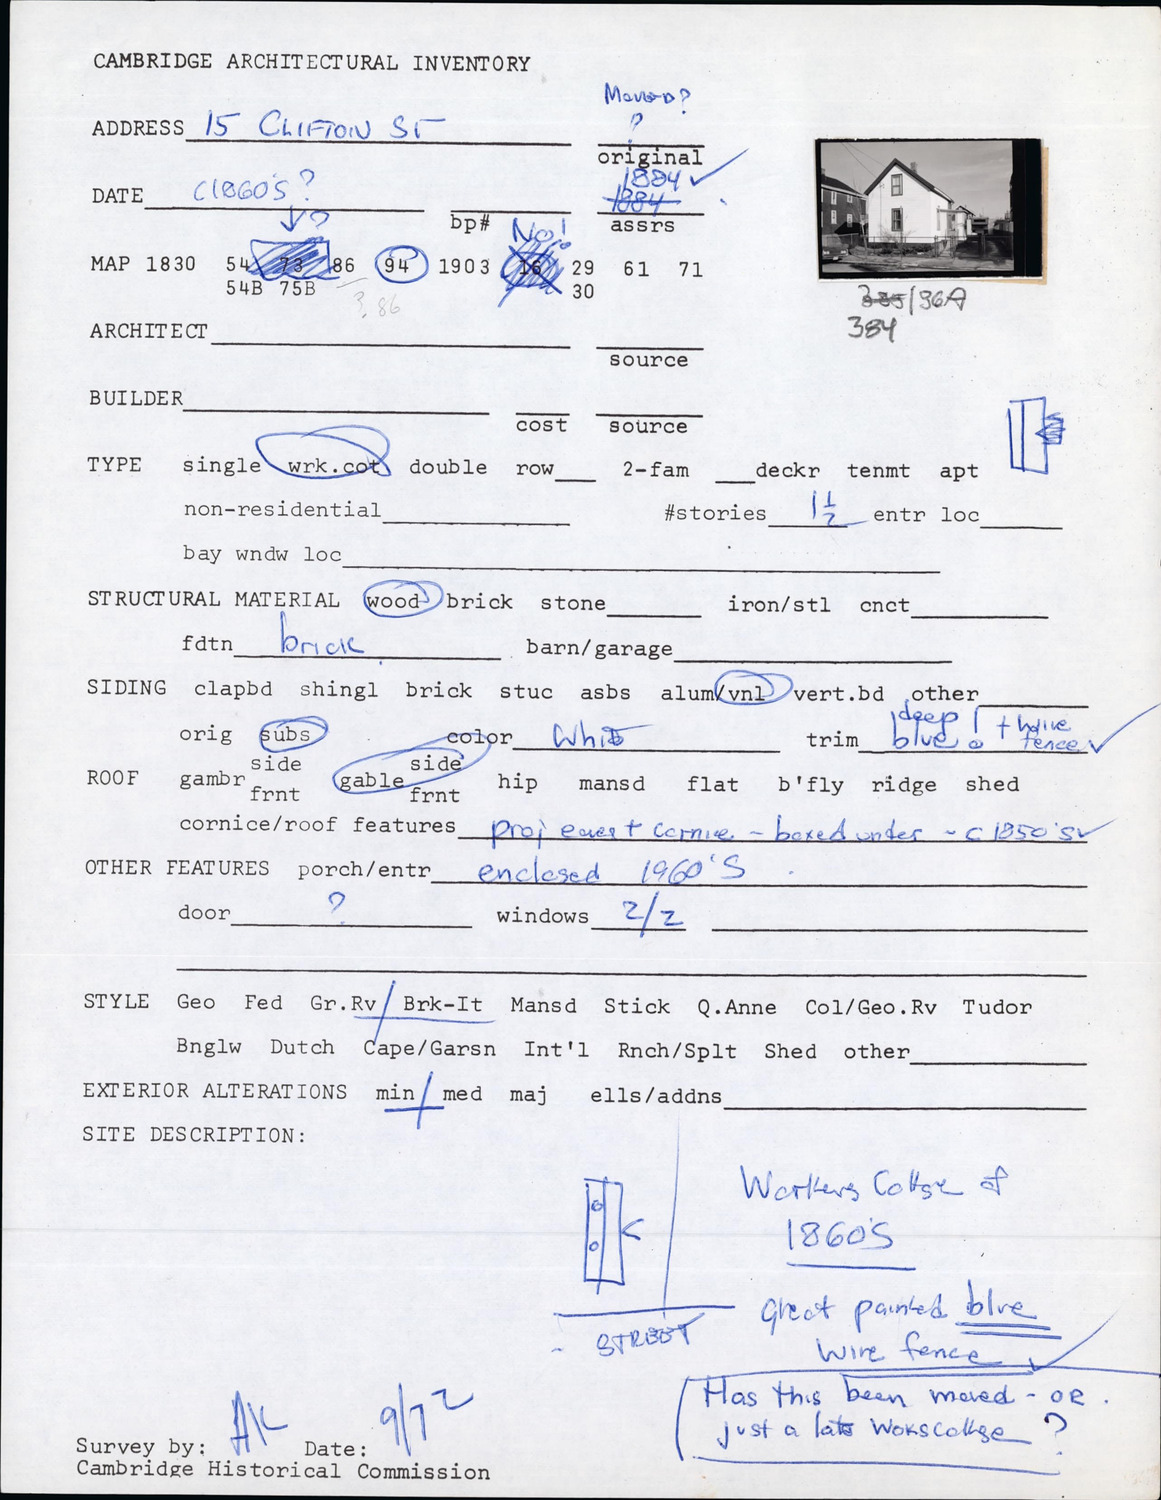 CAMBRIDGE ARCHITECTURAL INVENTORY
Moved?
ADDRESS 15 CLIFTON ST ?
original
DATE c1860's? 1884
1884
bp# assrs
? No!
MAP 1830 54 73 86 94 1903 16 29 61 71
54B 75B 30
?, 86
385/36A
384
ARCHITECT
source
BUILDER
cost source
TYPE single wrk.cot double row 2-fam deckr tenmt apt
non-residential #stories 1 1/2 entr loc
bay wndw loc
STRUCTURAL MATERIAL wood brick stone iron/stl cnct
fdtn brick barn/garage
SIDING clapbd shingl brick stuc asbs alum/vnl vert.bd other
orig subs color White trim deep blue! + wire fence
ROOF gambr side frnt gable side frnt hip mansd flat b'fly ridge shed
cornice/roof features proj eaves + cornice - boxed under - c1850's
OTHER FEATURES porch/entr enclosed 1960's
door ? windows 2/2
STYLE Geo Fed Gr.Rv/Brk-It Mansd Stick Q.Anne Col/Geo.Rv Tudor
Bnglw Dutch Cape/Garsn Int'l Rnch/Splt Shed other
EXTERIOR ALTERATIONS min/med maj ells/addns
SITE DESCRIPTION:
Workers Cottage of
1860's
Great painted blue
wire fence
STREET
Has this been moved - OR
just a late Wkscottge ?
Survey by: AK Date: 9/72
Cambridge Historical Commission